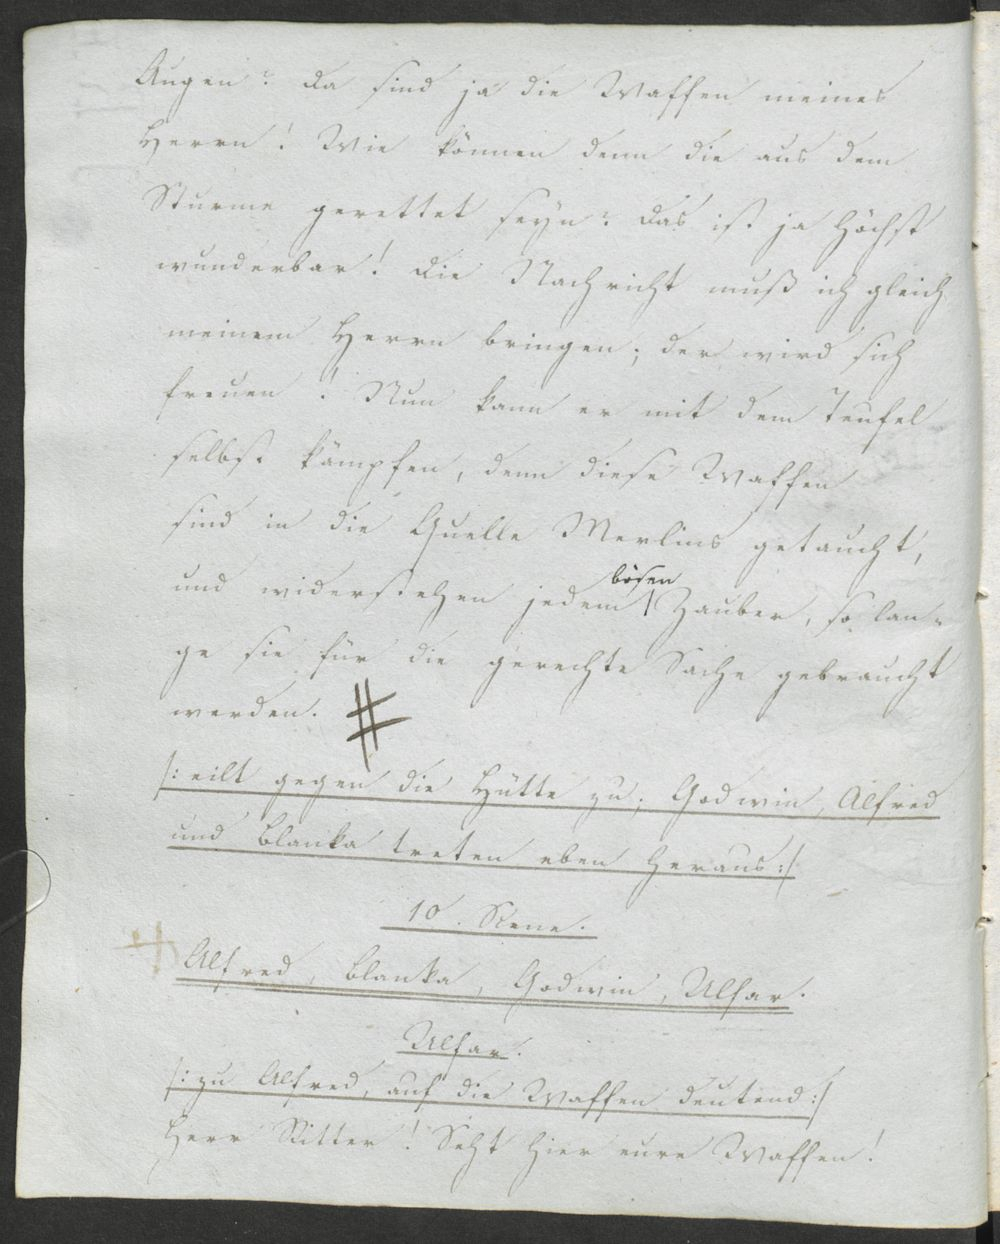 Augen? Da sind ja die Waffen meines
Herrn! Wie können denn die aus dem
Sturme gerettet seyn? das ist ja höchst
wunderbar! die Nachricht muß ich gleich
meinem Herrn bringen; der wird sich
freuen! Nun kann er mit dem Teufel
selbst kämpfen, denn diese Waffen
sind in die Quelle Merlins getaucht,
bösen
und widerstehen jedem Zauber, so lan=
ge sie für die gerechte Sache gebraucht
werden.
/: eilt gegen die Hütte zu; Godwin, Alfred
und Blanka treten eben heraus :/
10. Scene.
Alfred, Blanka, Godwin, Ulfar.
Ulfar.
/: zu Alfred, auf die Waffen deutend :/
Herr Ritter! Seht hier eure Waffen!